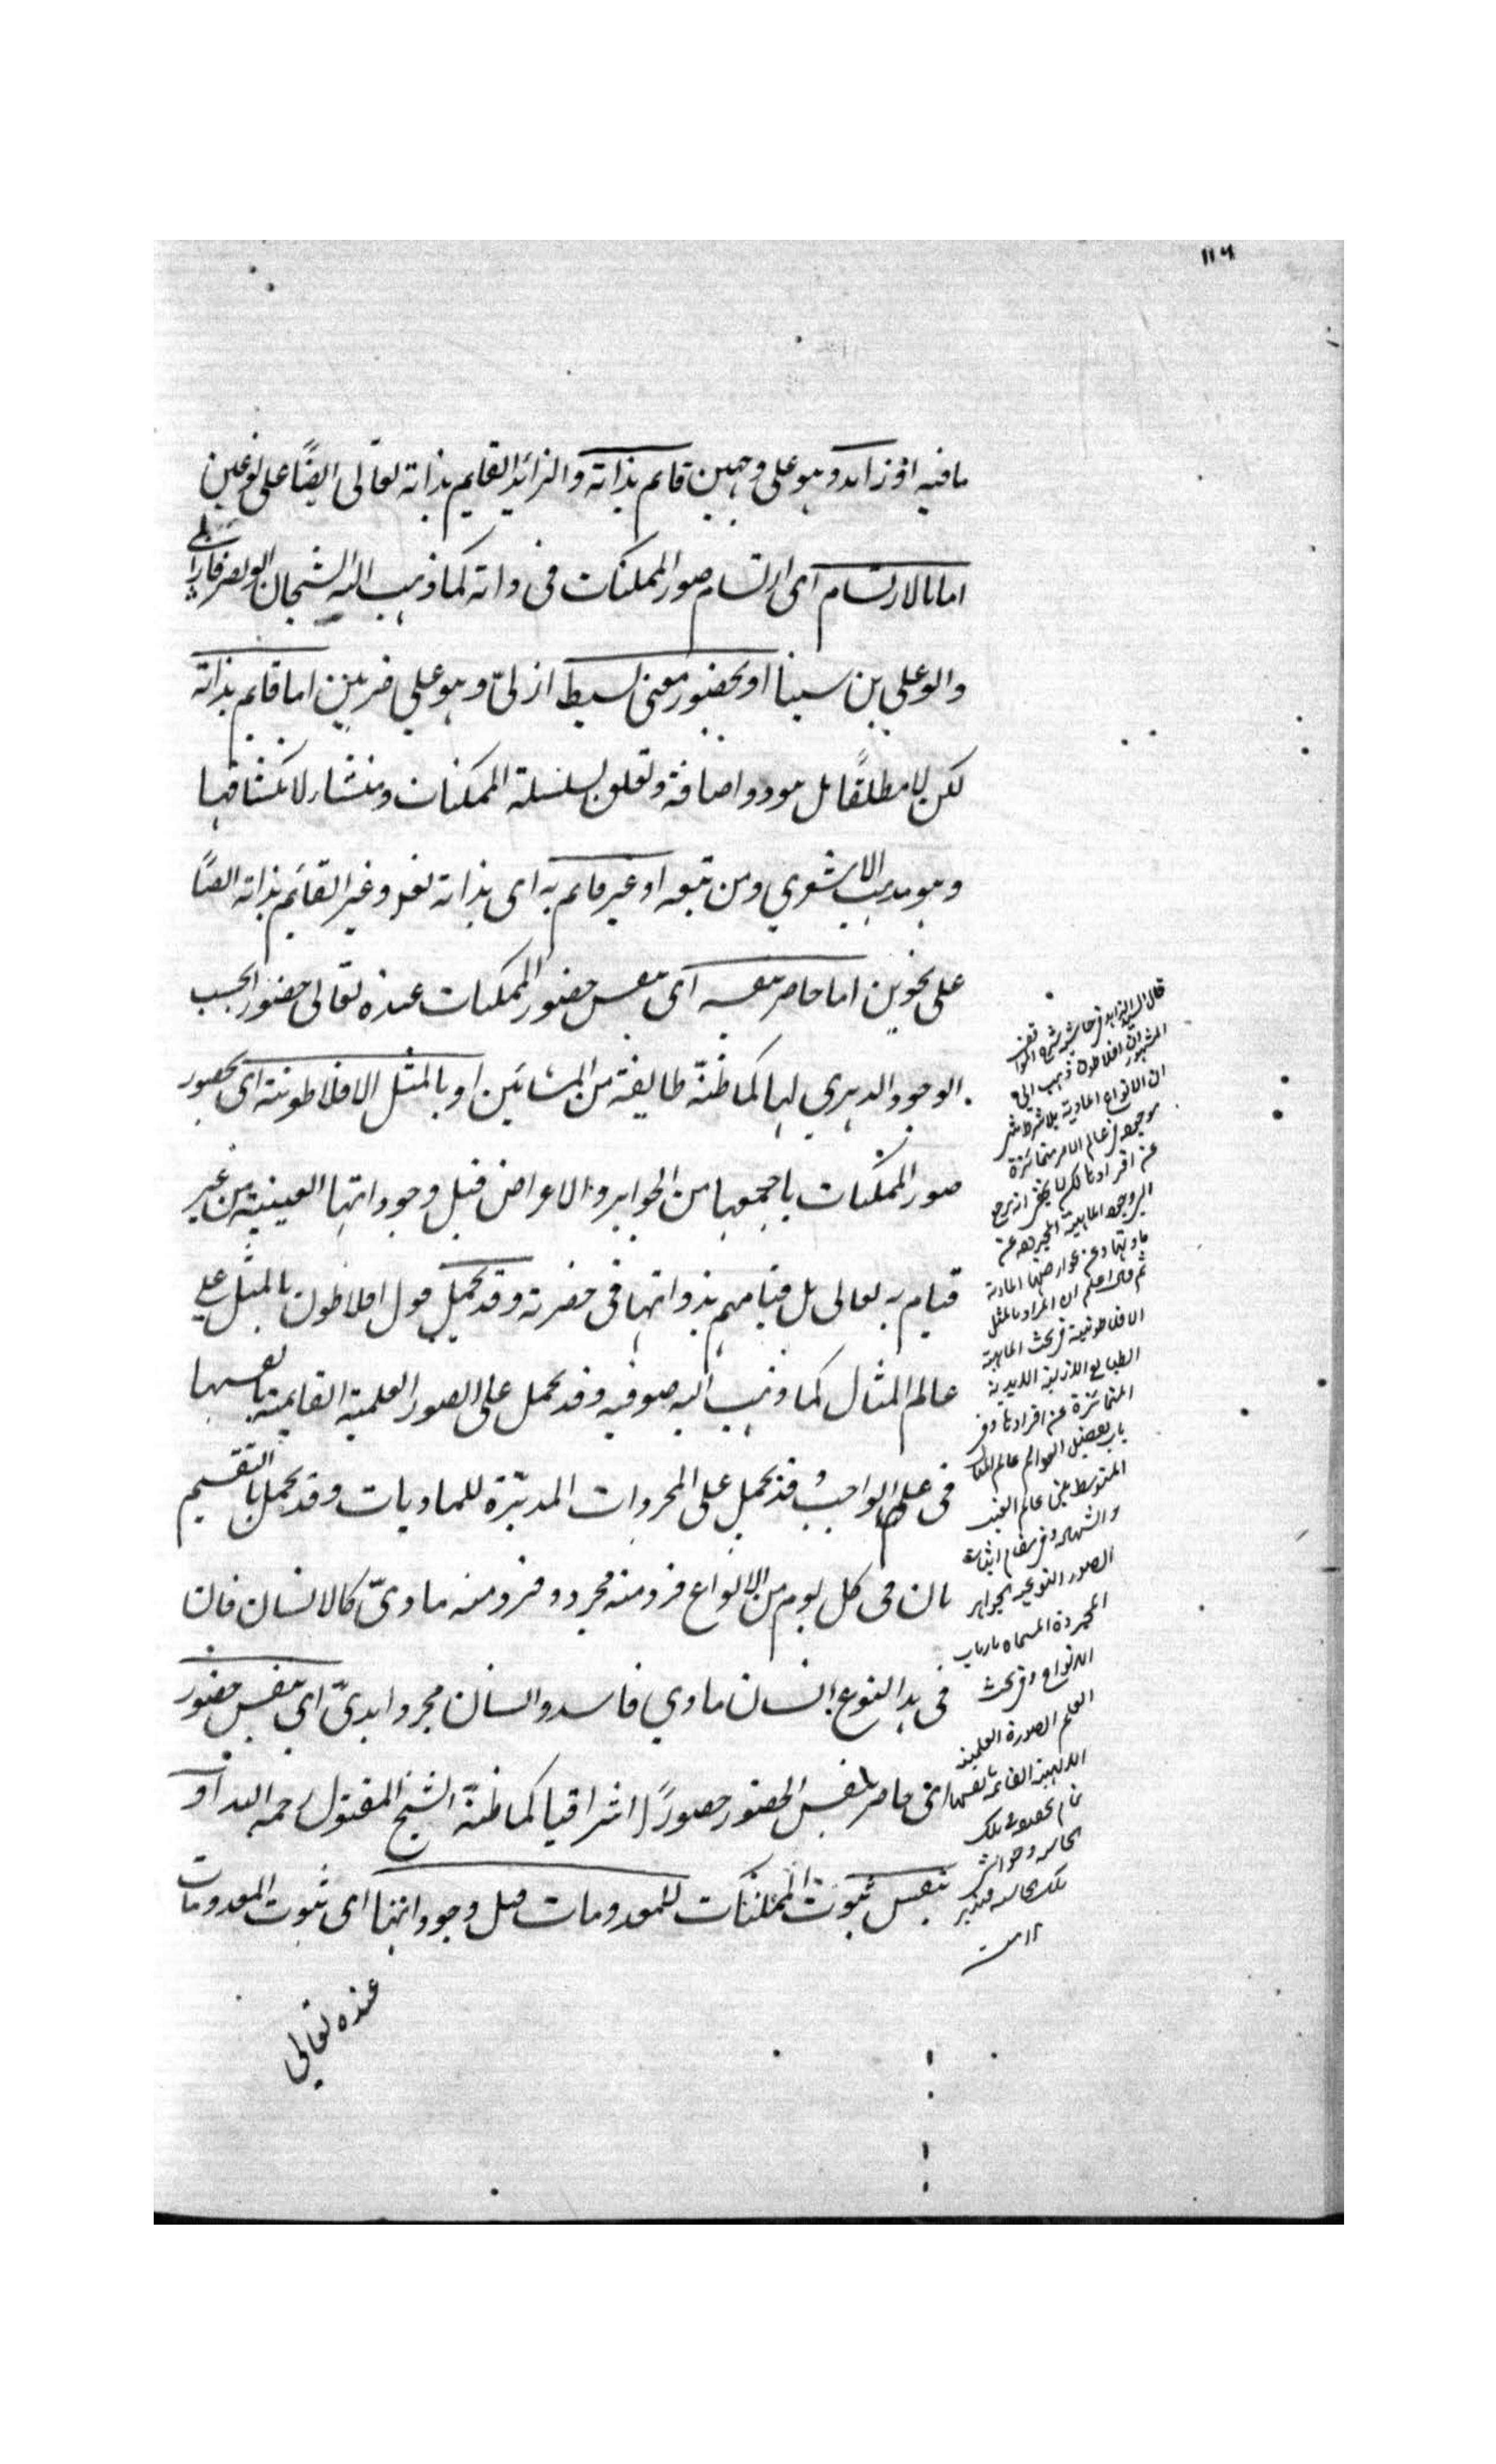 ۱۱۶
مافيه او زايد وهو على وجهين قايم بذاته والزائد القايم بذاته تعالى ايضًا على نوعين
اما بالارتسام اى ارتسام صور الممكنات فى ذاته كما ذهب اليه الشيخان ابو نصر فارابى
وابو على بن سينا او بحضور معنى بسيط ازلىّ وهو على ضربين اما قايم بذاته
لكن لا مطلقًا بل هو ذو اضافة وتعلق بسلسلة الممكنات ومنشاء لانكشافها
وهو مذهب الاشعري ومن تبعه او غير قايم به اى بذاته تعالى وغير القائم بذاته ايضًا
على نحوين اما حاضر بنفسه اى بنفس حضور الممكنات عنده تعالى حضورا بحسب
الوجود الدهري لها كما ظنّه طايفة من المشائين او بالمثل الافلاطونية اى بحضور
صور الممكنات باجمعها من الجواهر والاعراض قبل وجوداتها العينية من غير
قيام به تعالى بل قيامهم بذواتها فى حضرته وقد يحمل قول افلاطون بالمثل على
عالم المثال كما ذهب اليه صوفيه وقد يحمل على الصور العلمية القايمة بانفسها
فى علم الواجب وقد يحمل على المجردات المدبّرة للماديات وقد يحمل بالتقسيم
بان فى كل يوم من الانواع فرد منه مجرد وفرد منه مادىّ كالانسان فان
فى هذا النوع انسان مادي فاسد وانسان مجرد ابدىّ اى بنفس حضور
اى حاضر بنفس الحضور حضورًا اشراقيا كما ظنّه الشيخ المقتول رحمه الله او
بنفس ثبوت الممكنات المعدومات قبل وجوداتها اى ثبوت المعدومات
عنده تعالى
قال السيد الزاهد فى حاشية شرح المواقف
المشهور ان افلاطون ذهب الى
ان الانواع المادية بلا شرط شئ
موجودة فى عالم الامر متمائزة
عن افرادها لكن لا يخفى انه يرجع
الى وجود الماهية المجردة عن
مادتها وعن عوارضها المادية
ثم قال اعلم ان المراد بالمثل
الافلاطونية فى بحث الماهية
الطبايع الازلية الابدية
المتمائزة عن افرادها وفى
باب تفصيل العوالم عالم المثال
المتوسط بين عالم الغيب
والشهادة وفى مقام اثبات
الصور النوعية الجواهر
المجردة المسماة بارباب
الانواع وفى بحث
العلم الصورة العلمية
الالهية القائمة بانفسها